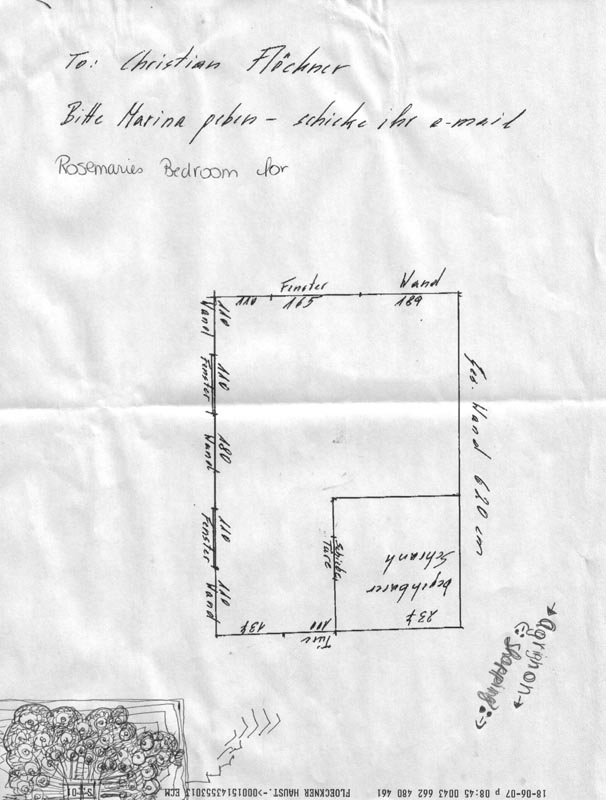 To: Christian Flöckner
Bitte Marina geben - schicke ihr e-mail
Rosemaries Bedroom for
Fenster
Wand
110
165
189
Wand
110
Fenster
110
Wand
180
Fenster
110
Wand
110
ges. Wand 620 cm
Schiebe
Türe
begehbarer
Schrank
237
137
100
Türe
agrignon
shopping
S-T-01
18-06-07 p 08:45 0043 662 480 461 FLOECKNER HAUST. ->0001514355301? ECM